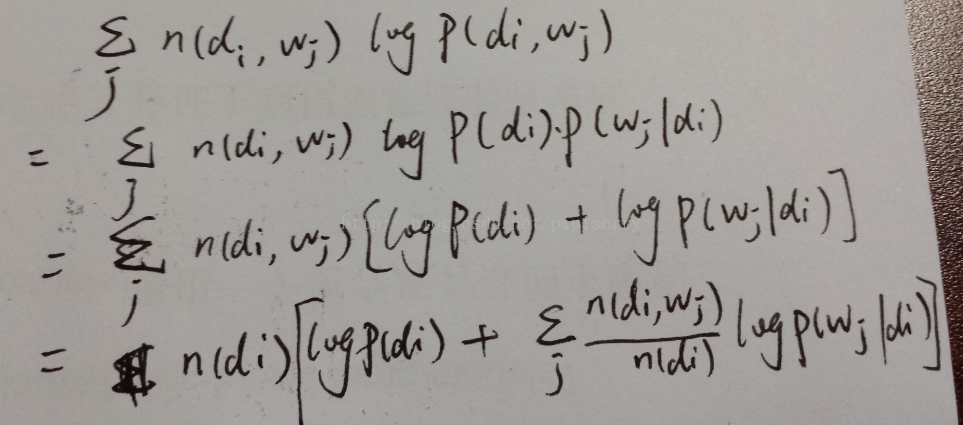 ∑_j n(di, wj) log p(di, wj)
= ∑_j n(di, wj) log p(di)·p(wj|di)
= ∑_j n(di, wj)[log p(di) + log p(wj|di)]
= n(di)[log p(di) + ∑_j n(di,wj)/n(di) log p(wj|di)]